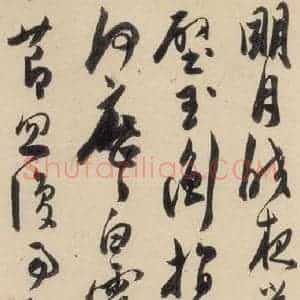 明月皎夜光
壁玉衡指
何歷〻白露
節忽復易
Shufaziliao.c